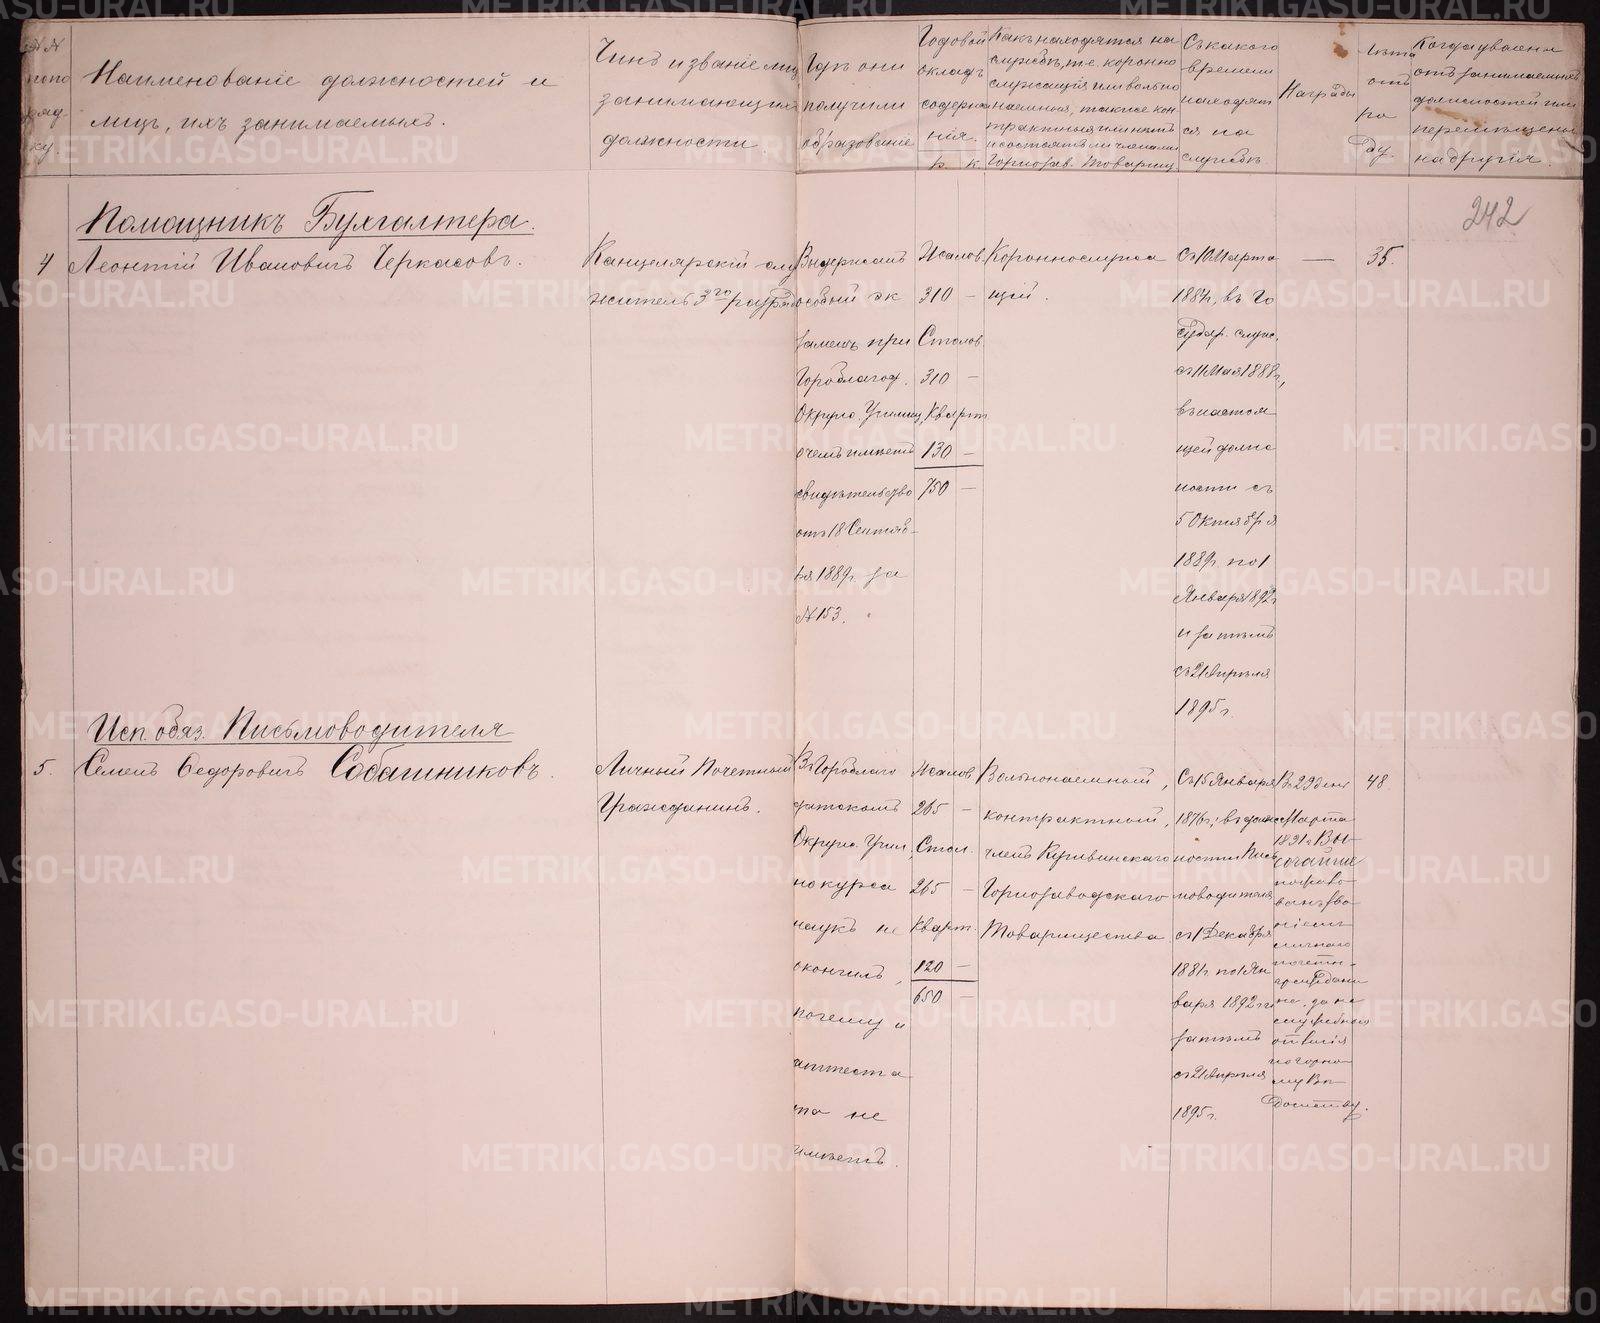 №№ по поряд-ку.
Наименованіе должностей и
лицъ, ихъ занимаемыхъ.
Чинъ и званіе лицъ
занимающихъ
должности.
Гдѣ они
получили
образованіе
Годовой
окладъ
содержа
нія.
р. к.
Какъ находятся на
службѣ, т.е. коронно
служащія или вольно
наемныя, также кон
трактныя или нѣтъ
и состоятъ ли членами
Горнозав. Товарищ
Съ какого
времени
находят
ся на
службѣ
Награды
Лѣта
отъ
ро
ду.
Когда уволены
отъ занимаемыхъ
должностей или
перемѣщены
на другія.
242
Помощникъ Бухгалтера.
4 Леонтій Ивановичъ Черкасовъ.
Канцелярскій слу
житель 3го разряда
Выдержалъ
особый эк
заменъ при
Гороблагод.
Окруж. Училищ,
о чемъ имѣетъ
свидѣтельство
отъ 18 Сентяб-
ря 1889г. за
№153.
Жалов.
310 —
Столов.
310 —
Кварт.
130 —
750 —
Короннослужа
щій.
Съ 10 Марта
1884г., въ Го
судар. служ.
съ 11 Мая 1888г.,
въ настоя
щей долж
ности съ
5 Октября
1889г. по 1
Января 1892г.
и затѣмъ
съ 21 Апрѣля
1895г.
—
35.
Исп. обяз. Письмоводителя
5. Семенъ Ѳедоровичъ Собашниковъ.
Личный Почетный
Гражданинъ.
Въ Гороблаго
датскомъ
Окруж. Учил.,
но курса
наукъ не
окончилъ,
почему и
аттеста
та не
имѣетъ.
Жалов.
265 —
Стол.
265 —
Кварт.
120 —
650 —
Вольнонаемный,
контрактный,
членъ Кушвинскаго
Горнозаводскаго
Товарищества
Съ 15 Января
1876г.; въ долж
ности Пись
моводителя
съ 1 Декабря
1881г. по 1 Ян
варя 1892г. и
затѣмъ
съ 21 Апрѣля
1895г.
Въ 29 день
Марта
1891г. Вы-
сочайше
пожало-
ванъ зва-
ніемъ
личнаго
почетн-
гражданина
на, за не
служебныя
отличія
по горно-
му Вѣ-
домству.
48.
METRIKI.GASO-URAL.RU